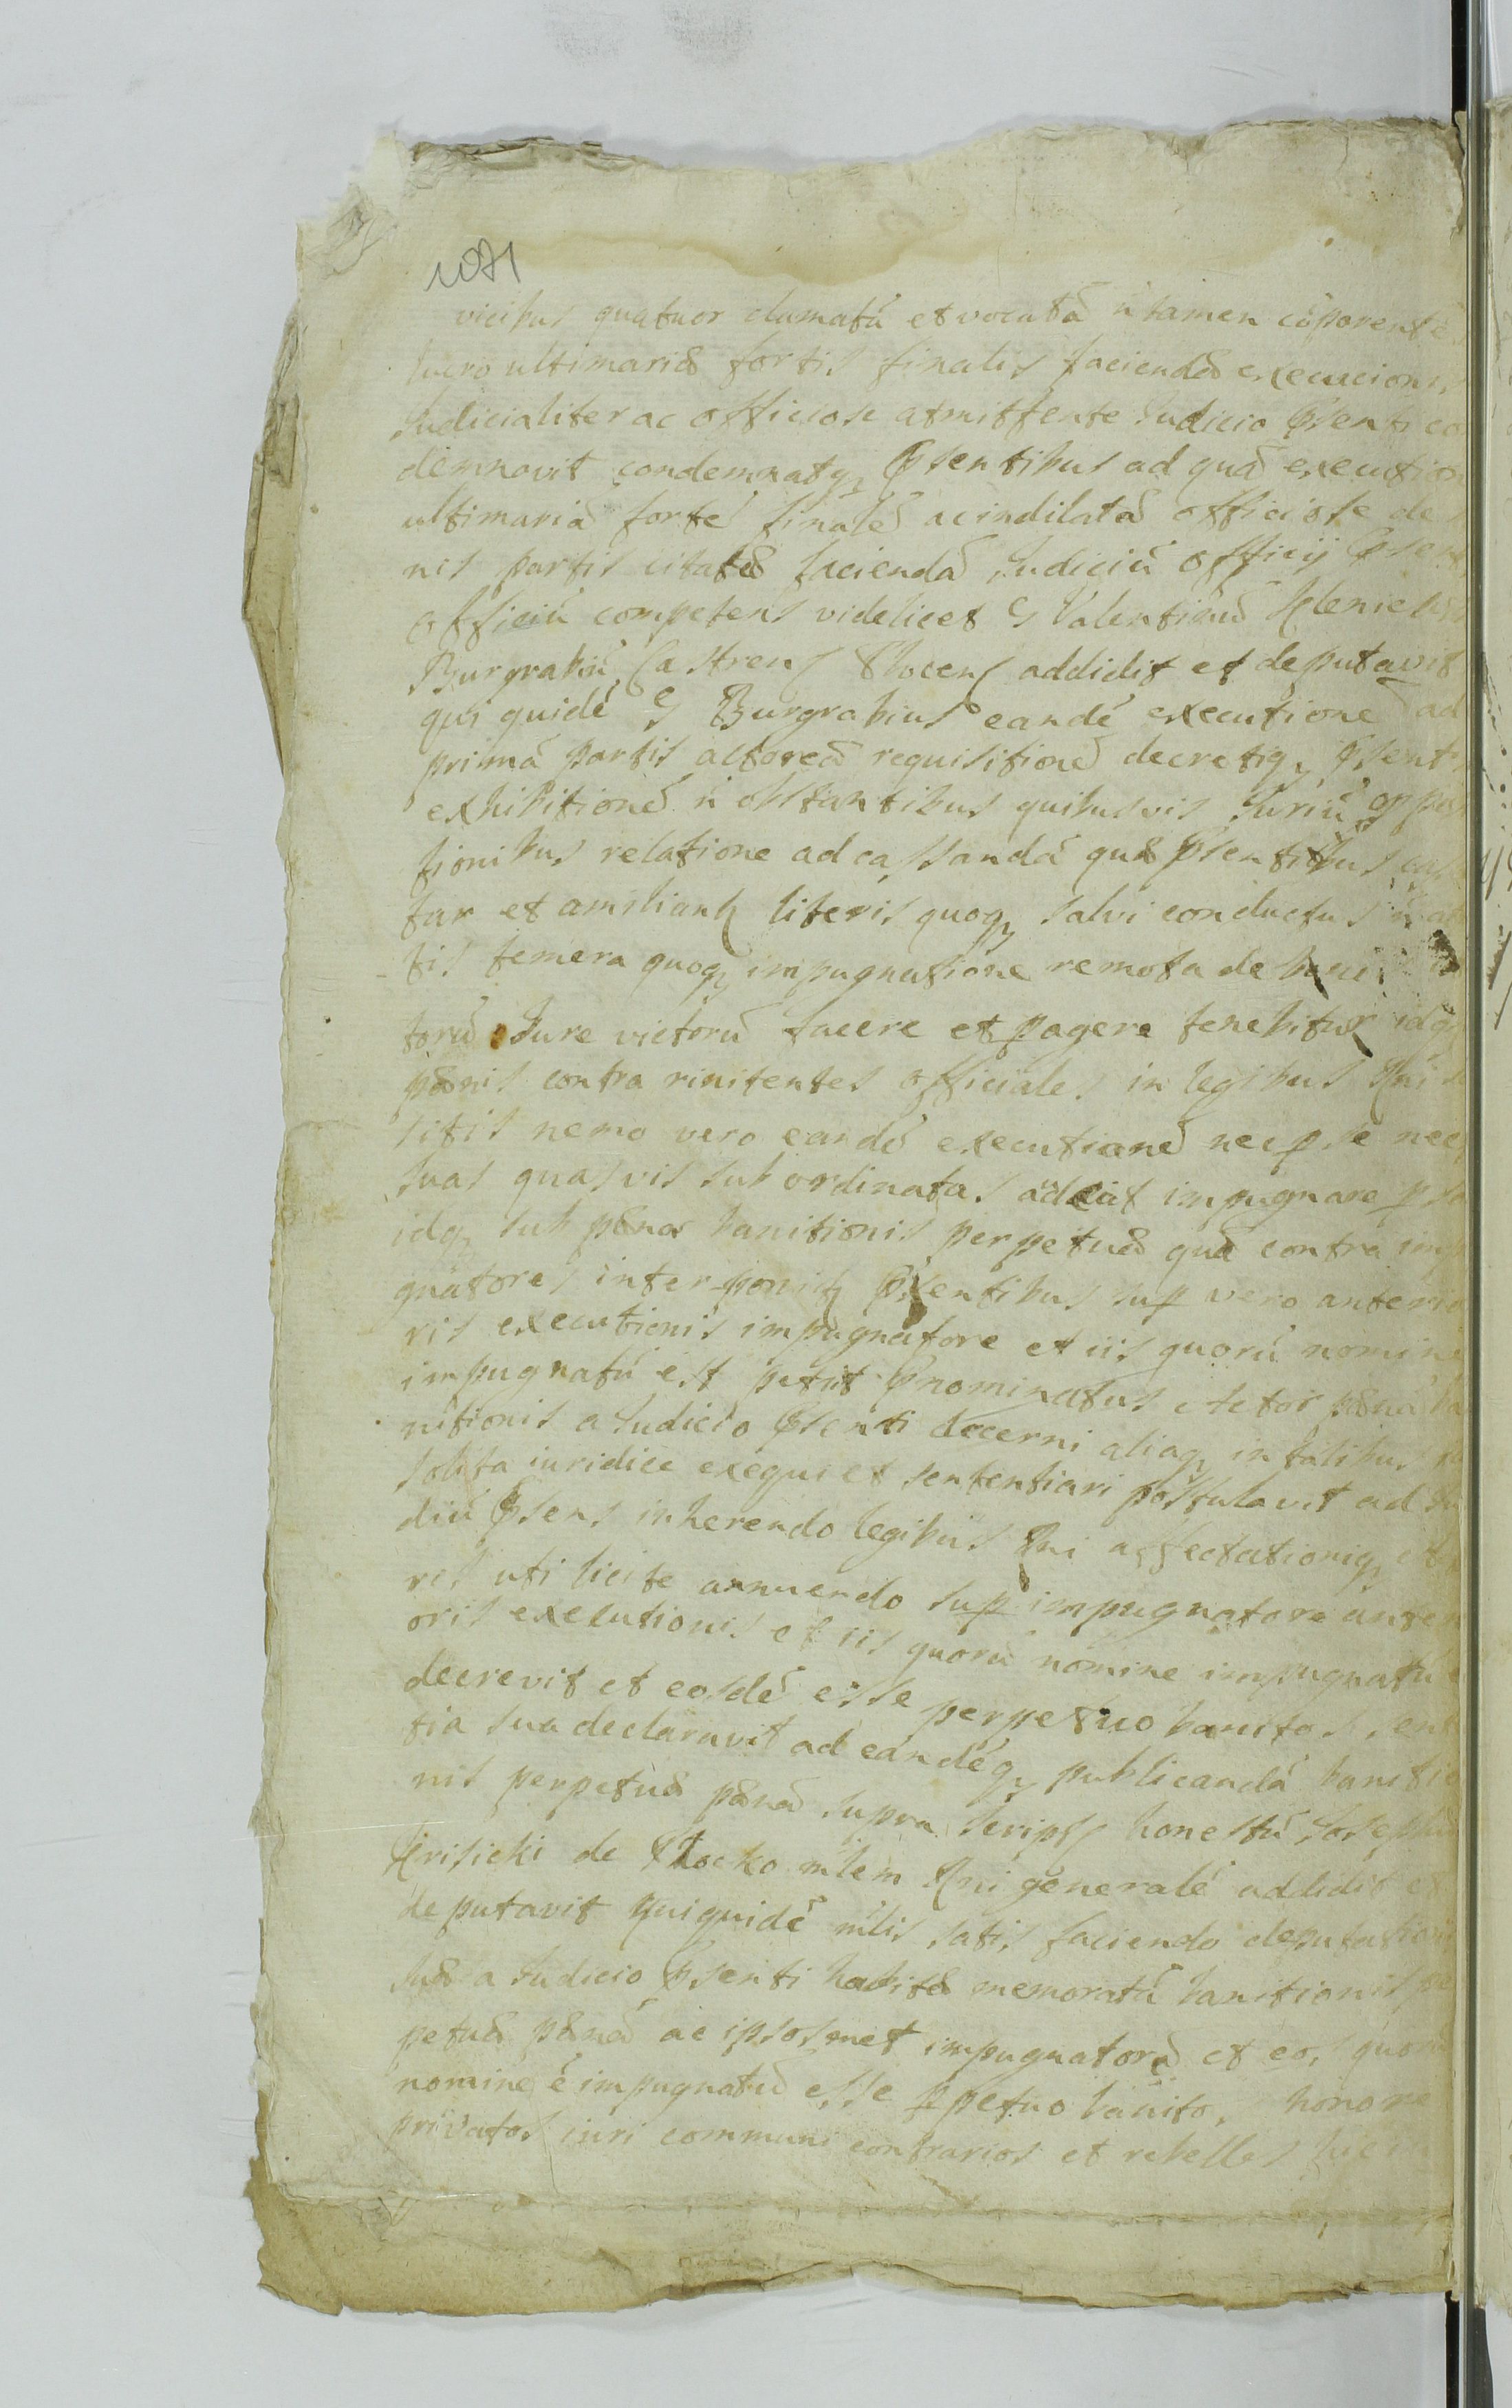 1071
vicibus quatuor clamatū et vocatā n̄ tamen cōparente
lucro ultimariæ fortis finalis faciendæ execucionis
Judicialiter ac officiose atmittente Judicio p̄senti co
demnavit condemnatqz p̄sentibus ad quā execution
ultimariā fortē finalē ac indilatā officiose de
nis partis citatæ faciendā Judiciū officij p̄sens
officiū competens videlicet G Valentinū
Burgrabiū Castrens Plocens addidit et deputavit
qui quidē G Burgrabius eandē executionē ad
primā partis actoreā requisitionē decretiqz p̄sent
exhibitionē n̄ obstantibus quibusvis Juriū oppo
tionibus relatione ad cassandā quæ p̄sentibus cas
tar et amilianz literis quoqz salvi conductus n̄
tis temera quoqz impugnatione remota
torū Jure victorū facere et pagere tenebitur idqz
pænis contra rinitentes officiales in legibus Rni
sitis nemo vero eandē executianē nec p se nec
suas quasvis subordinatas audeat impugnare pso
idqz sub pæna banitionis perpetuæ quā contra imp
gnatores interponitz p̄sentibus sup vero anterio
ris executionis impugnatore et iis quorū nomine
impugnatū est petiit p̄nominatus Actor pænā ba
nitionis a Judicio p̄senti decerni aliaqz in talibus
solita iuridice exequi et sententiari postulavit ad Ju
diū p̄sens inherendo legibus Rni affectationiqz
res uti licite annuendo sup impugnatore anteri
oris executionis et iis quorū nomine impugnatū
decrevit et eosdē esse perpetuo banitos sent
tia sua declaravit ad eandēqz publicandā banitio
nis perpetuæ pænā supra scripts honestū Josephū
Krisicki de Plocko mlem Rni generalē addidit et
deputavit qui quidē mlis satis faciendo deputationi
suæ a Judicio p̄senti habitæ memoratā banitionis pe
petuæ pænā ac ipsosmet impugnatorē et eos quorū
nomine ē impugnatū esse ppetuo banito, honore
privatos iuri communi contrarios et rebelles